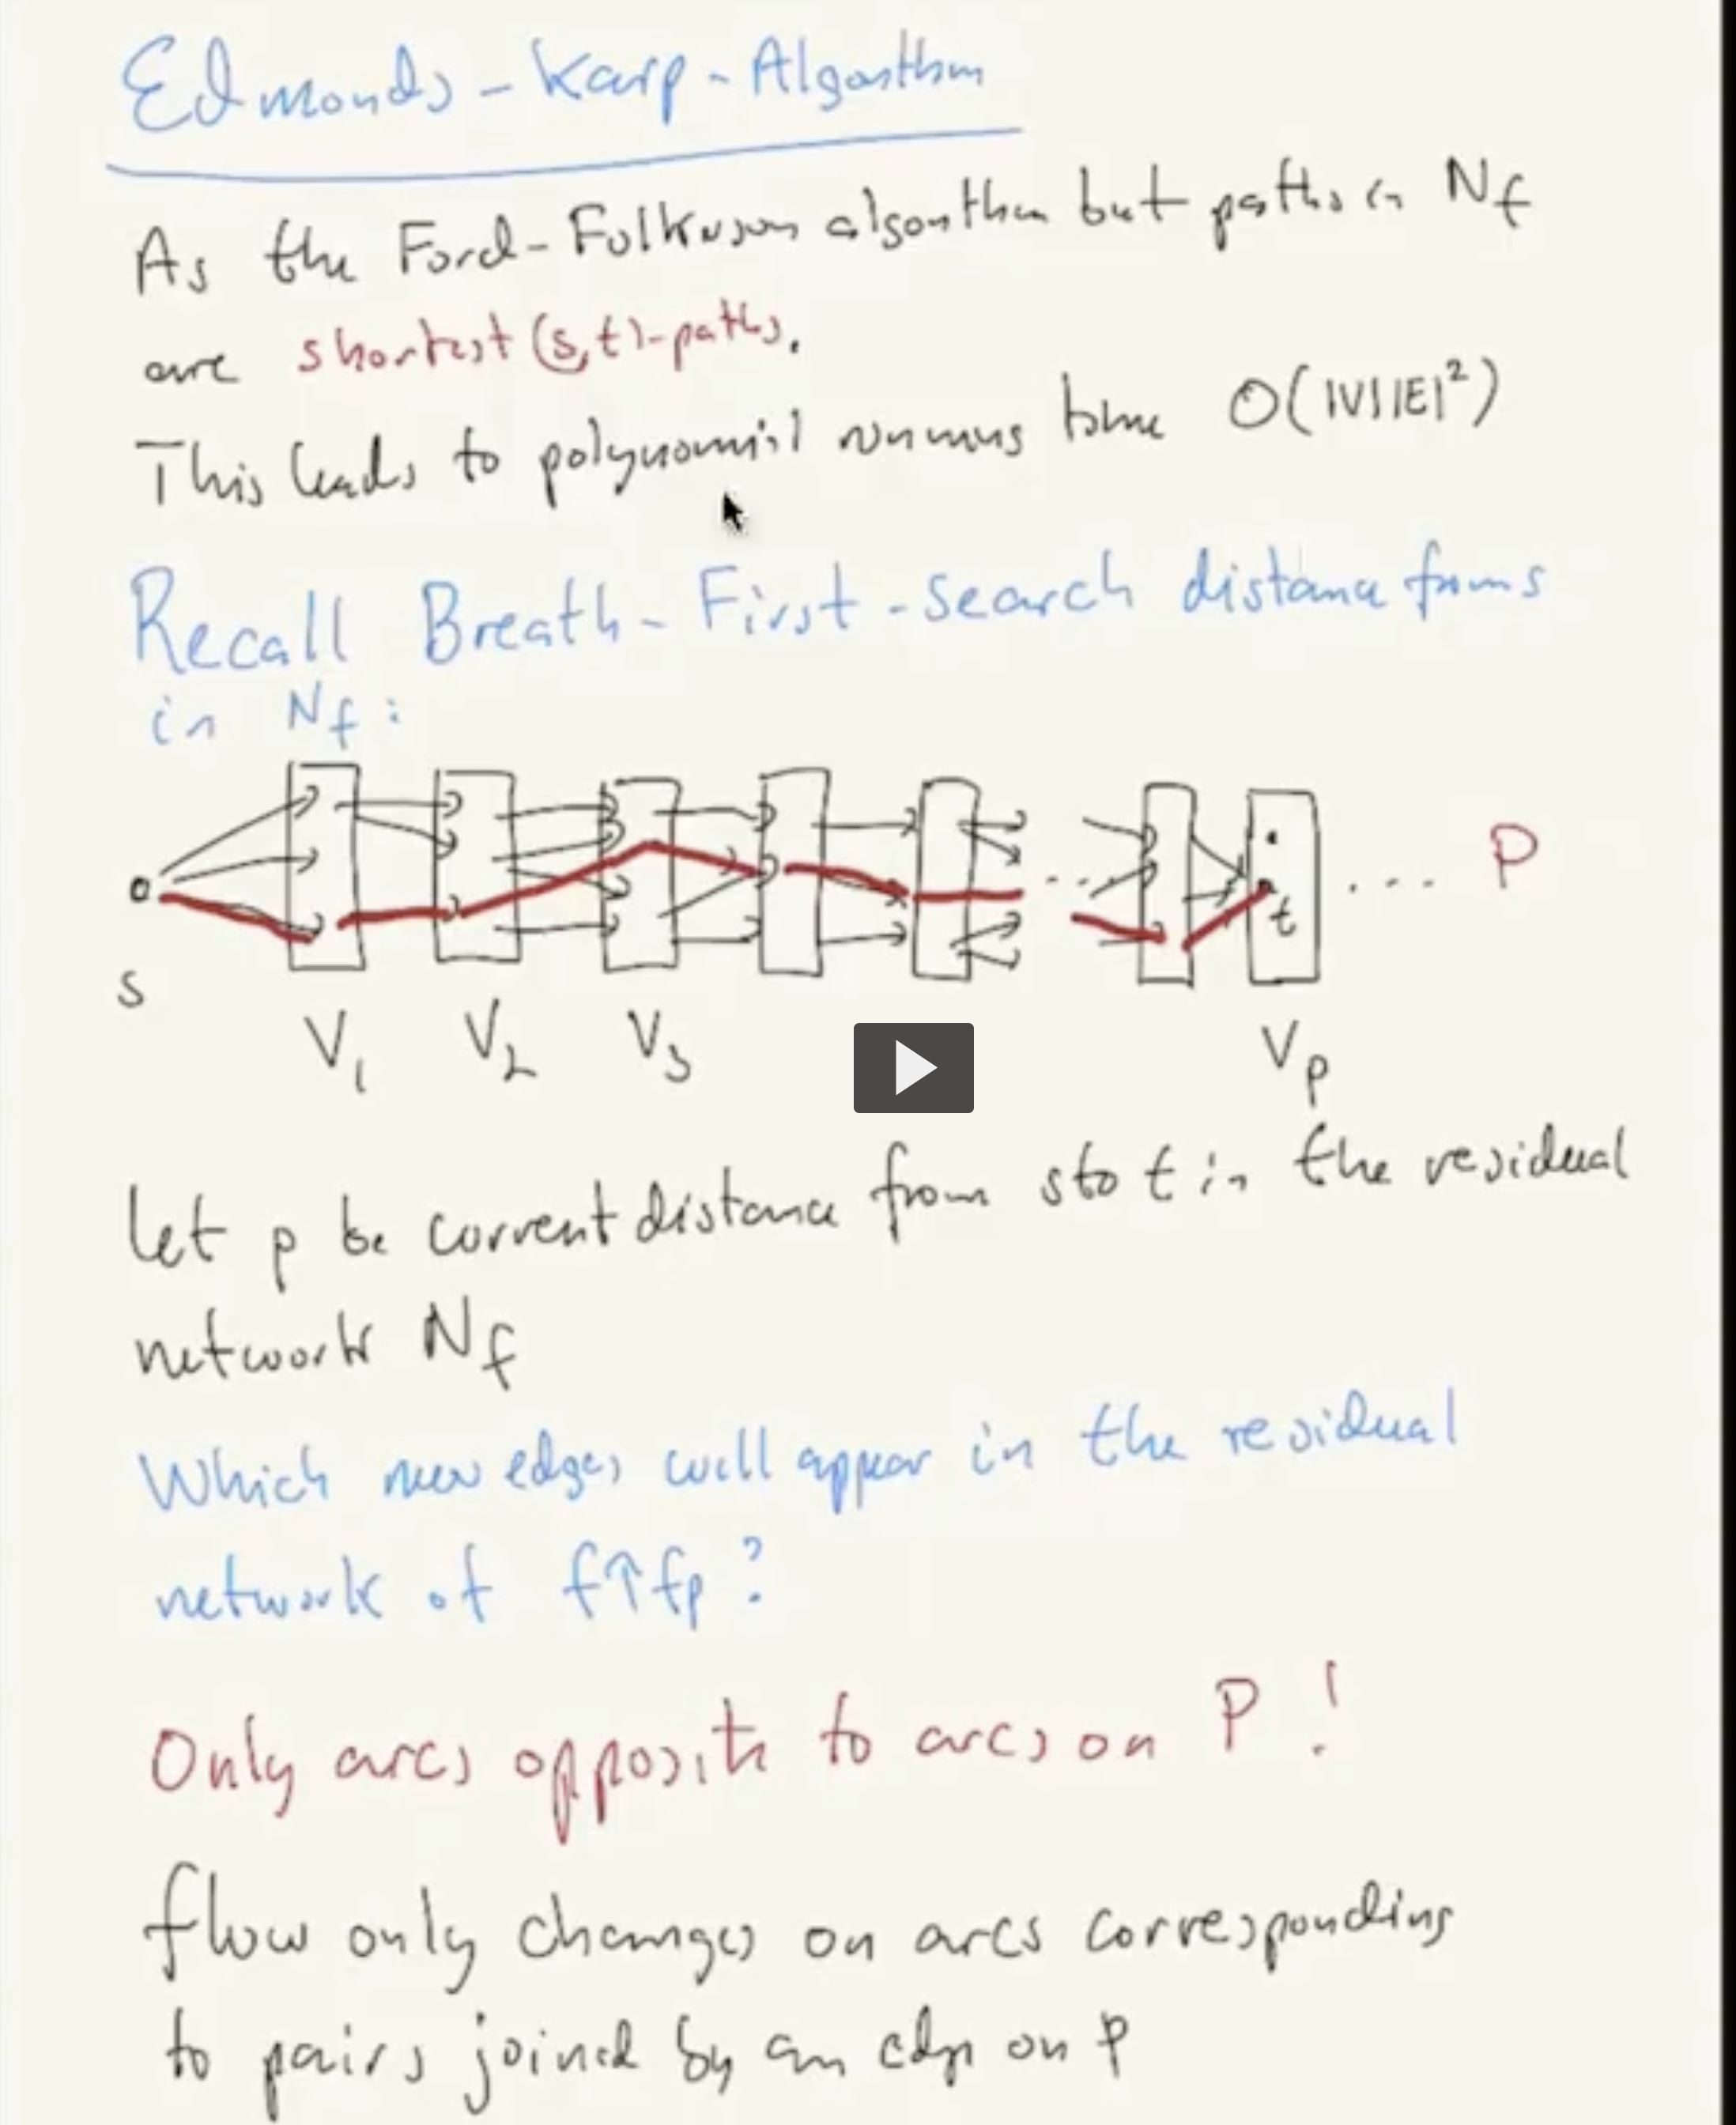 Edmonds-Karp-Algorithm
As the Ford-Fulkerson algorithm but paths in Nf
are shortest (s,t)-paths.
This leads to polynomial running time O(|V||E|²)
Recall Breath-First-search distance from s
in Nf:
s V₁ V₂ V₃ t Vp ... P
Let p be current distance from s to t in the residual
network Nf
Which new edges will appear in the residual
network of f↑fp?
Only arcs opposite to arcs on P!
flow only changes on arcs corresponding
to pairs joined by an edge on P